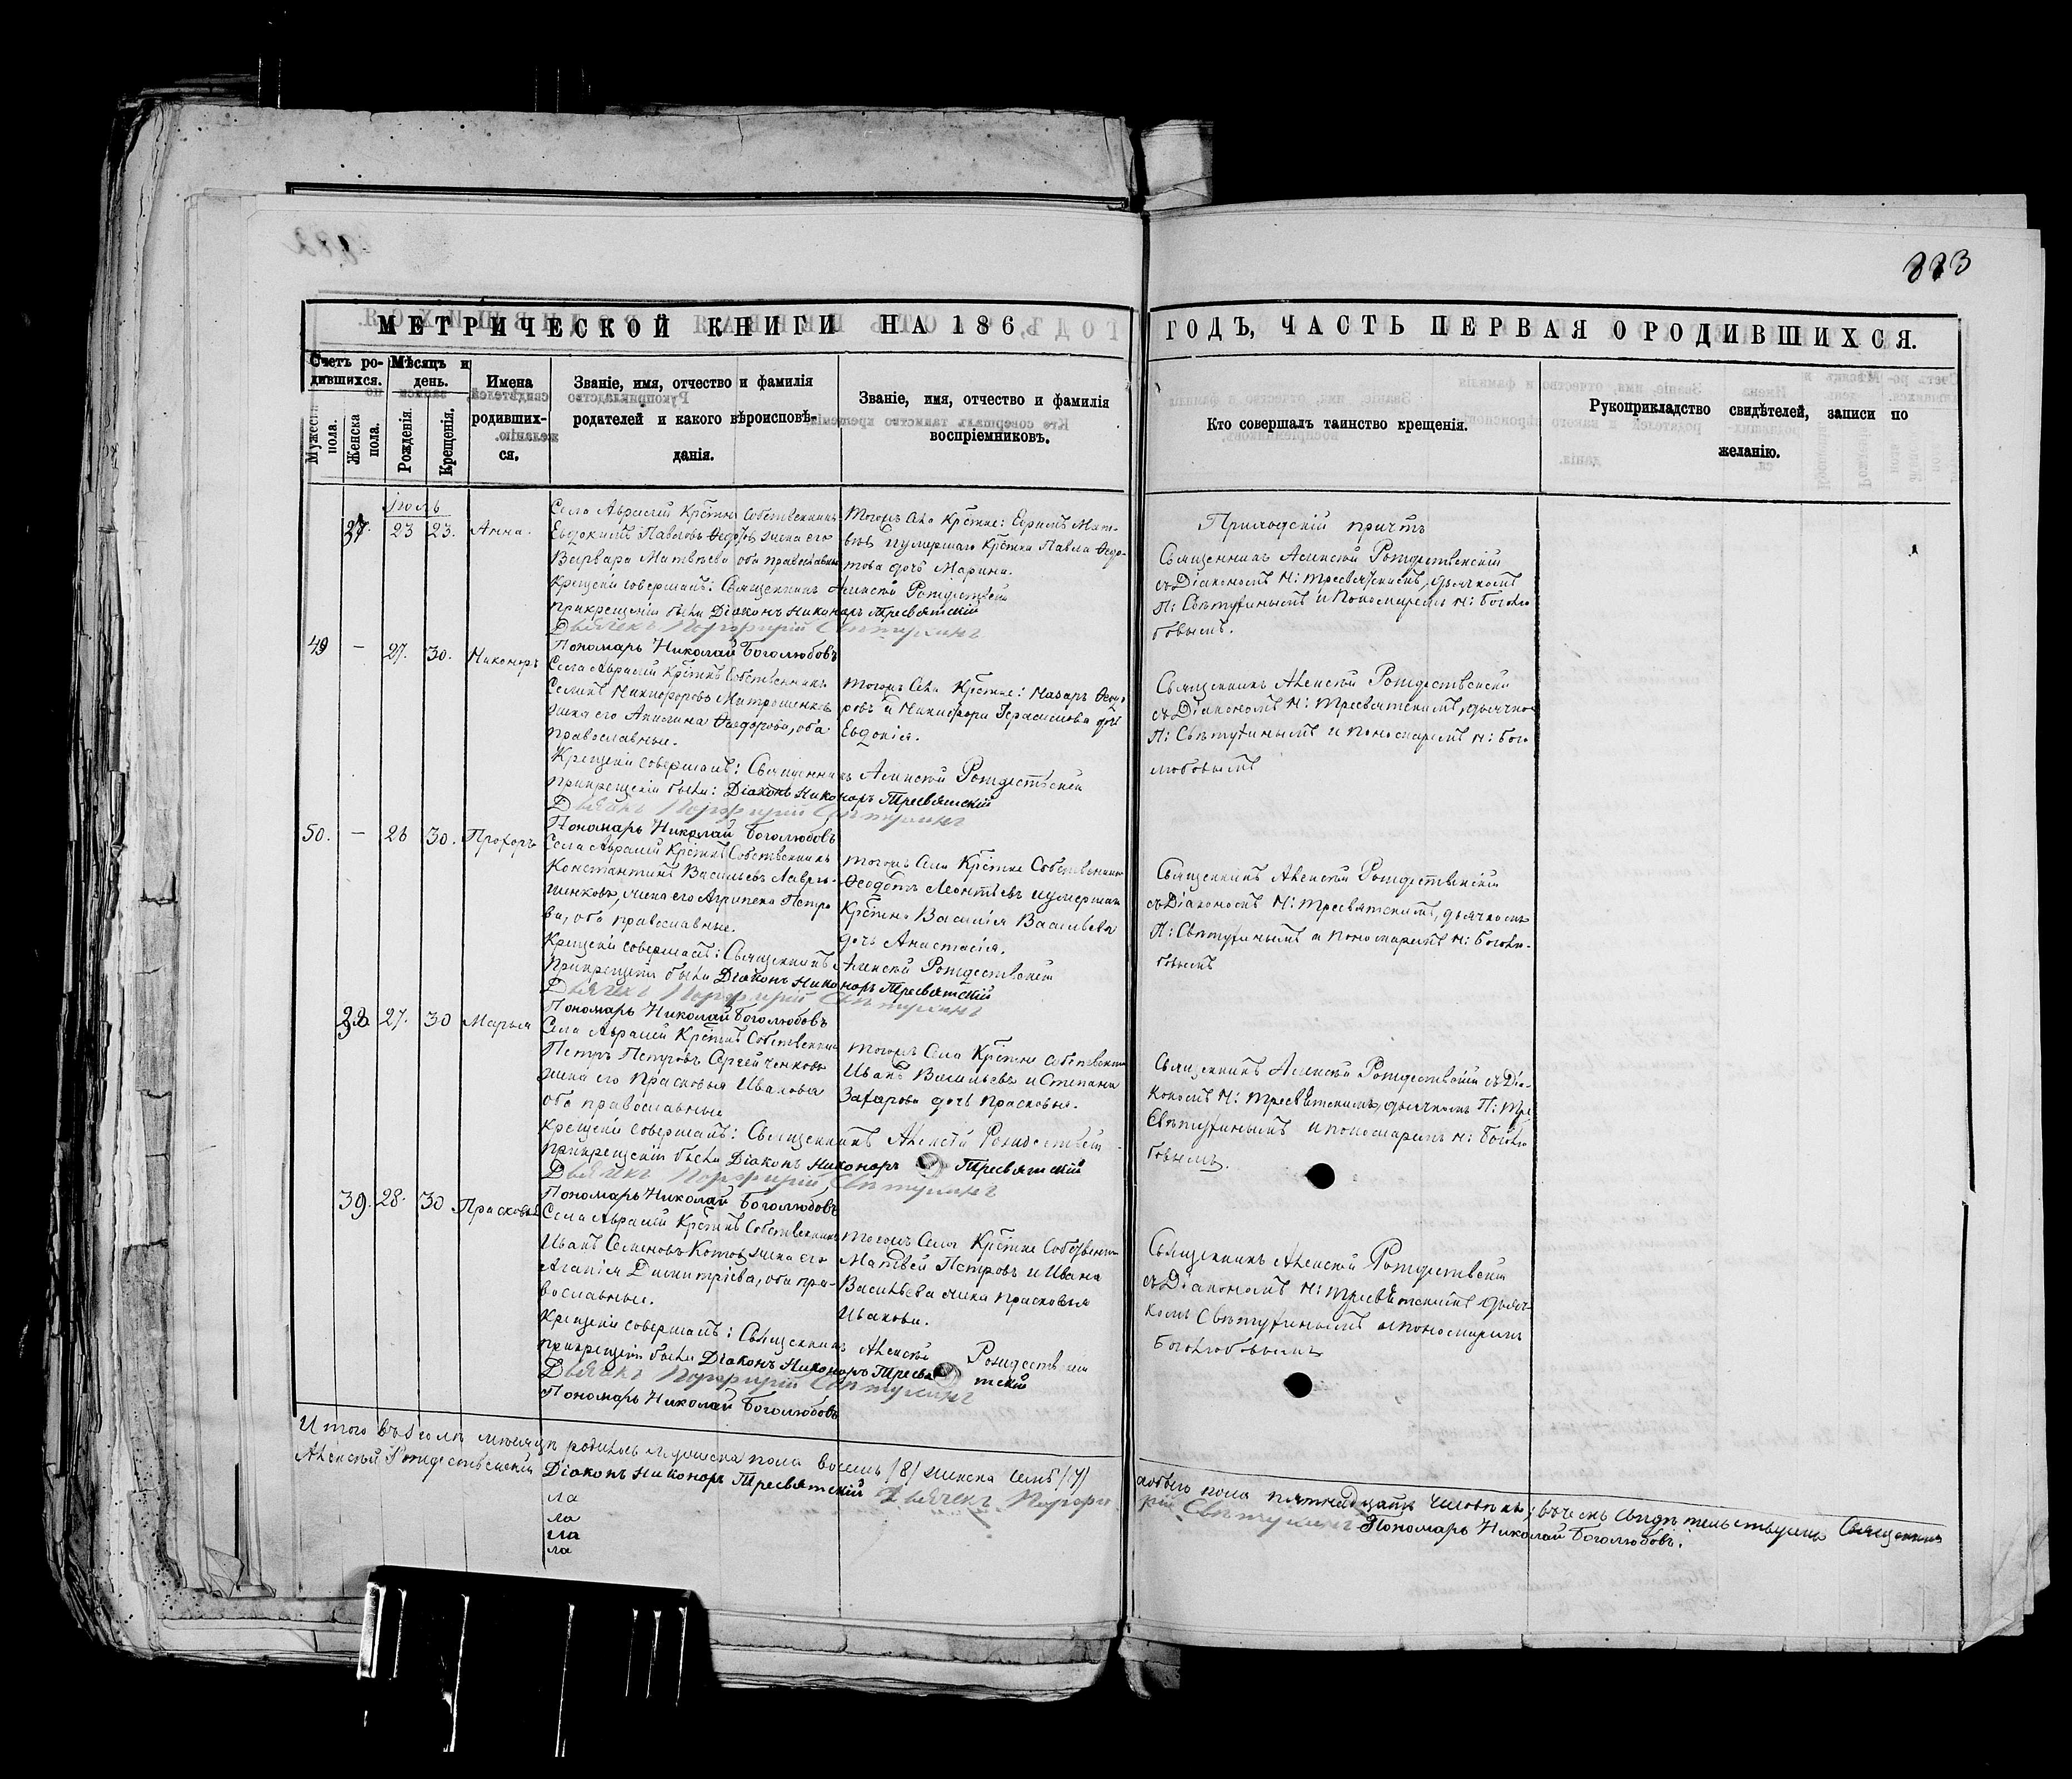 883
МЕТРИЧЕСКОЙ КНИГИ НА 186
ГОДЪ, ЧАСТЬ ПЕРВАЯ О РОДИВШИХСЯ.
Счетъ ро-
дившихся.
Мужеска пола.
Женска пола.
Мѣсяцъ и
день.
Рожденія.
Крещенія.
Имена
родивших-
ся.
Званіе, имя, отчество и фамилія
родителей и какого вѣроисповѣ-
данія.
Званіе, имя, отчество и фамилія
воспріемниковъ.
Кто совершалъ таинство крещенія.
Рукоприкладство свидѣтелей, записи по
желанію.
Іюль
37. 23 23. Анна.
Села Аврамей Крестнъ Собственникъ
Евдокимъ Павловъ Ѳедотъ жена его
Варвара Матвѣева оба православны
Крещеніе совершалъ: Священникъ Рождествскій
При крещеніи были Діаконъ Никоноръ Тресвятскій
Дьячекъ Порфирій
Пономарь Николай Боголюбовъ
Тогожъ Села Крестне: Ефимъ Мат-
вѣевъ и умершаго Крестна Павла Ѳедо-
това дочь Марина.
Приходскій причтъ
Священникъ Рождественскій
съ Діакономъ Н: Тресвятскимъ, дьячкомъ
и Пономаремъ Н: Боголю
бовымъ.
49 – 27. 30. Никоноръ
Села Аврамей Крестнъ Собственникъ
Семенъ Никифоровъ Митрошенковъ
жена его Акилина Ѳедорова, оба
православные.
Крещеніе совершалъ: Священникъ Рождествскій
При крещеніи были: Діаконъ Никоноръ Тресвятскій
Дьячекъ Порфирій
Пономарь Николай Боголюбовъ
Тогожъ Села Крестне: Назаръ Ѳедо-
ровъ и Никифора Герасимова дочь
Евдокія.
Священникъ Рождественскій
съ Діакономъ Н: Тресвятскимъ, дьячко
и пономаремъ Н: Бого
любовымъ
50. – 28 30. Прохоръ
Села Аврамей Крестнъ Собственникъ
Константинъ Васильевъ
жена его Агрипена Петро
ва, оба православные.
Крещеніе совершалъ: Священникъ Рождествскій
При крещеніи были Діаконъ Никоноръ Тресвятскій
Дьячекъ Порфирій
Пономарь Николай Боголюбовъ
Тогожъ Села Крестне Собственникъ
Ѳедотъ Леонтьевъ и умершаго
Крестна Василія Васильева
дочь Анастасія.
Священникъ Рождественскій
съ Діакономъ Н: Тресвятскимъ, дьячкомъ
и пономаремъ Н: Боголю-
бовымъ
38. 27. 30 Марья
Села Аврамей Крестнъ Собственникъ
Петръ Петровъ Сергейченковъ
жена его Прасковья Иванова
оба православные
Крещеніе совершалъ: Священникъ Рождествскій
При крещеніи были Діаконъ Никоноръ Тресвятскій
Дьячекъ Порфирій
Пономарь Николай Боголюбовъ
Тогожъ Села Крестне Собственникъ
Иванъ Васильевъ и Степана
Захарова дочь Прасковья.
Священникъ Рождествскій съ Діа-
кономъ Н: Тресвятскимъ, дьячкомъ П:
и пономаремъ Н: Боголю
бовымъ.
39. 28. 30 Прасковья
Села Аврамей Крестнъ Собственникъ
Иванъ Семеновъ Котовъ жена его
Агапія Димитріева, оба пра-
вославные.
Крещеніе совершалъ: Священникъ Рождествскій
При крещеніи были Діаконъ Никоноръ Тресвятскій
Дьячекъ Порфирій
Пономарь Николай Боголюбовъ
Тогожъ Села Крестне Собственникъ
Матвей Петровъ и Ивана
Васильева жена Прасковья
Иванова.
Священникъ Рождествскій
съ Діакономъ Н: Тресвятскимъ дьяч-
комъ и пономаремъ
Боголюбовымъ
Итого въ Іюлѣ мѣсяцѣ родилось мужеска пола восемь /8/ женска семь /7/
обоего пола пятнадцать человѣкъ; въ чемъ свидѣтельствуемъ Священникъ
Рождественскій Діаконъ Никоноръ Тресвятскій Дьячекъ Порфи
рій Пономарь Николай Боголюбовъ.